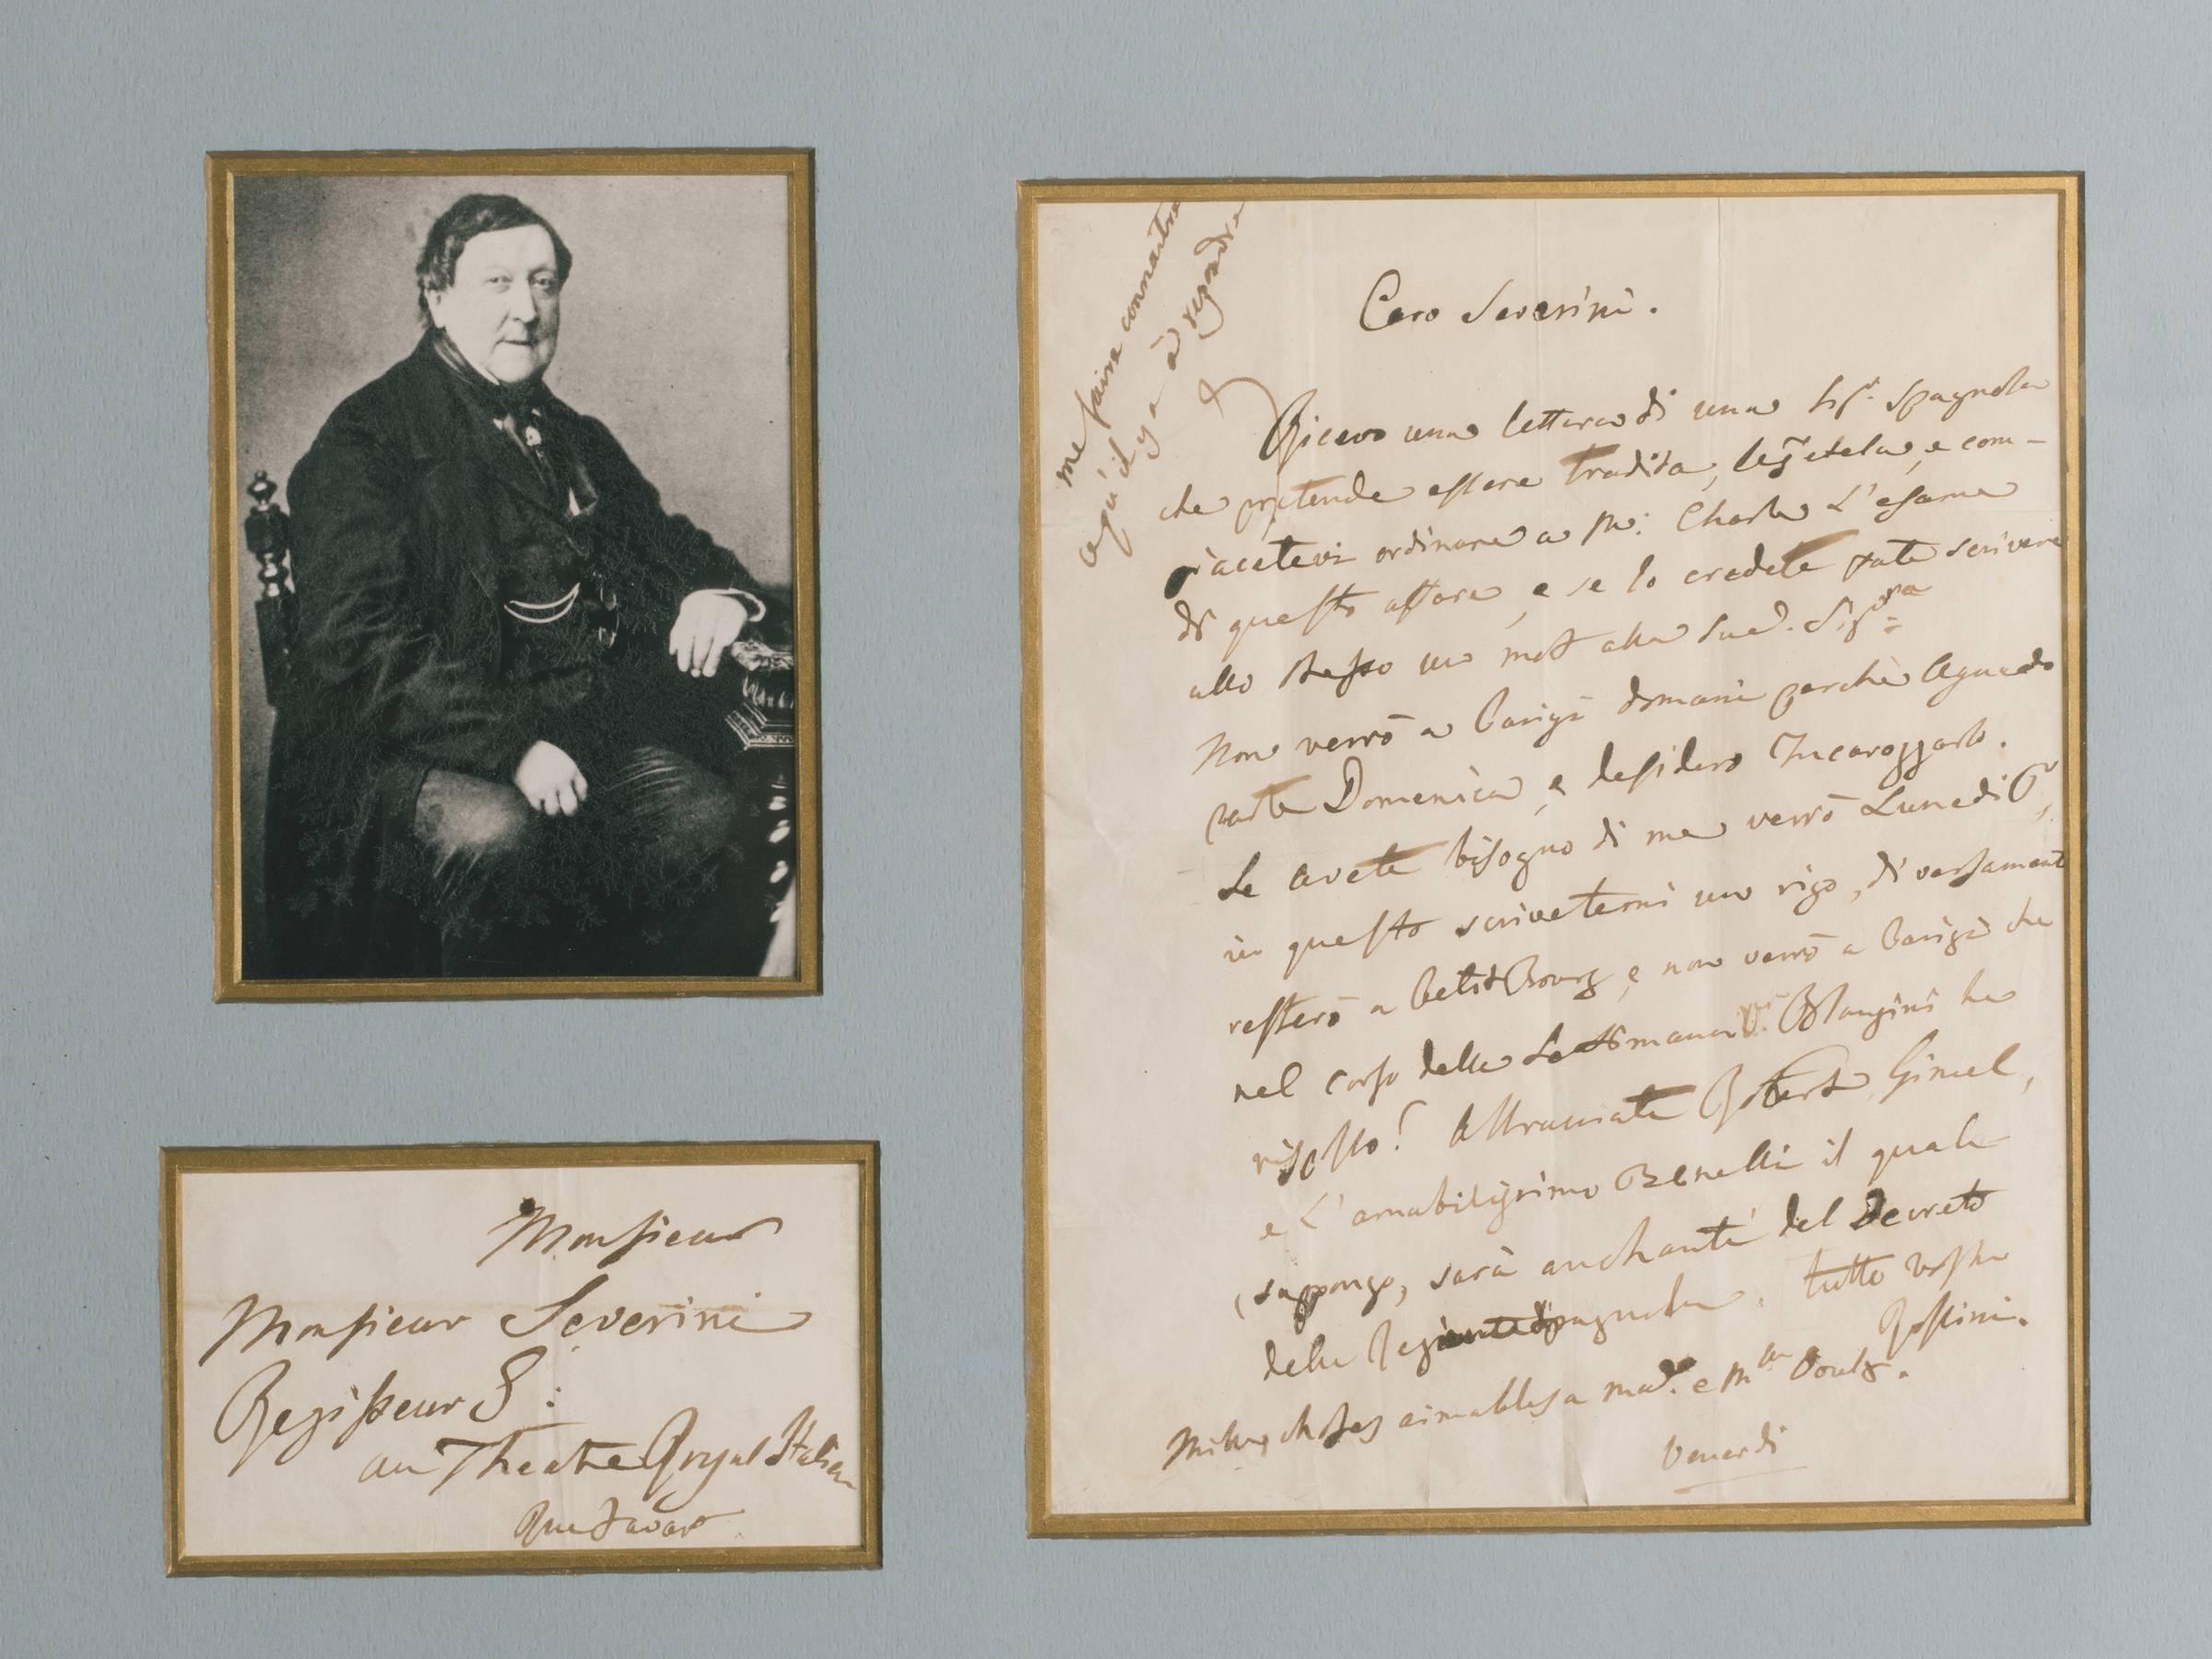 me faire connaitre
ce qu'il y a à repondre
Caro Severini.
Ricevo una lettera di una Sigra. Spagnola
che pretende essere tradita, legetela, e com-
piacetevi ordinare a Mr: Charle L'esame
di questo affare, e se lo credete fate scrivere
allo stesso un mot alla Sud. Sigra
Non verrò a Parigi domani perchè Aguado
parte Domenica, e desidero Incarozzarlo.
Se avete bisogno di me verrò Lunedi
in questo scrivetemi un rigo, diversament
resterò a Petit Bourg, e non verrò a Parigi che
nel corso della Settimana. Blangini ha
risposto? Abbracciate Robert,
e L'amabilissimo Benelli il quale
(suppongo, sarà anchanté del Decreto
della Spagnola. tutto vostro
Rossini.
Milles choses aimables a Mad. e Mr
Venerdi
Monsieur
Monsieur Severini
Regisseur G:
au Theatre Royal Italien
Rue Favart